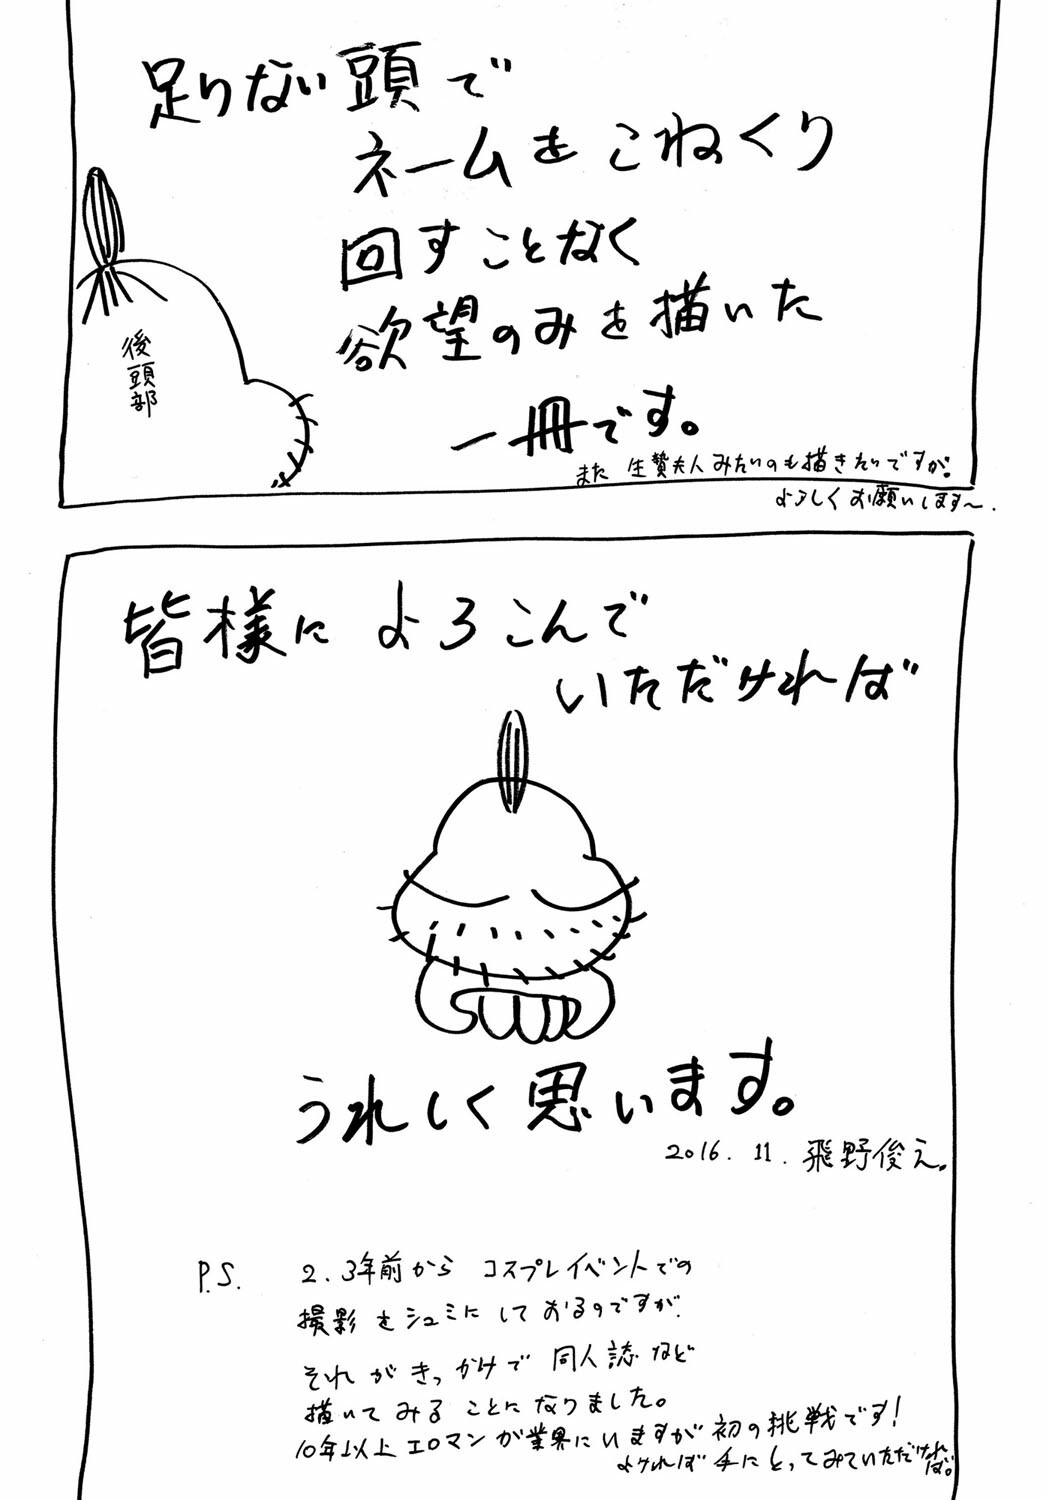 足りない頭で
ネームをこねくり
回すことなく
欲望のみを描いた
一冊です。
また 生贄夫人みたいのも描きたいですが。
よろしくお願いします〜.
後頭部
皆様に よろこんで
いただければ
うれしく思います。
2016.11. 飛野俊之。
P.S.
2、3年前から コスプレイベントでの
撮影をシュミにしておるのですが、
それがきっかけで 同人誌など
描いてみることになりました。
10年以上エロマンガ業界にいますが初の挑戦です!
よければ手にとってみていただければ。